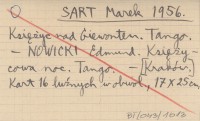 SART Marek 1956.
Księżyc nad Giewontem. Tango.
- NOWICKI Edmund. Księży-
cowa noc. Tango. - [Kraków].
Kart 16 luźnych w obwol., 17 X 25 cm.